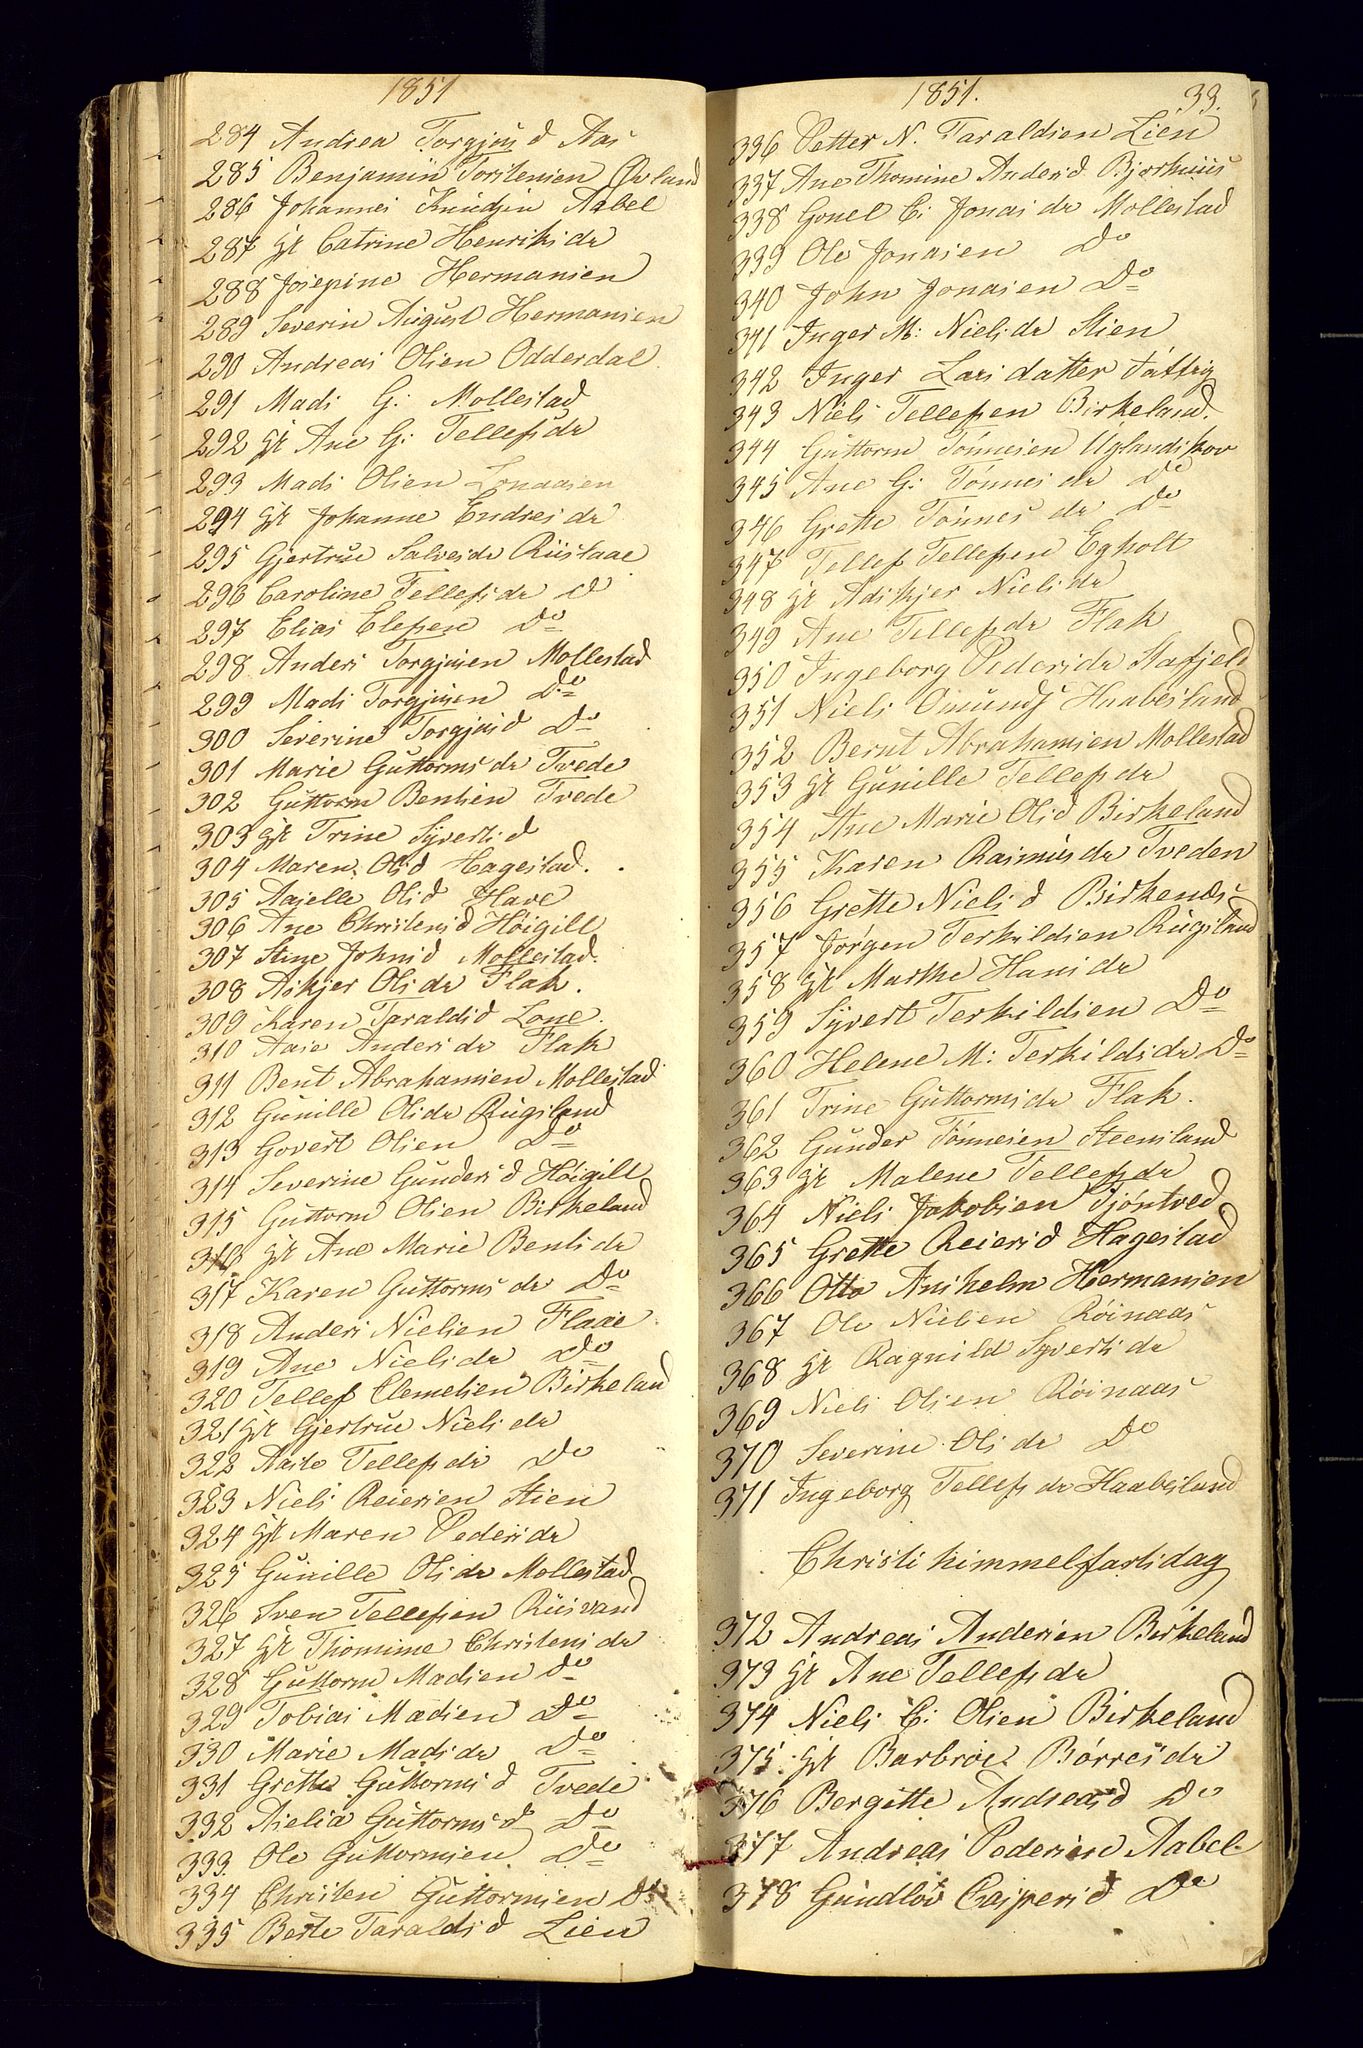 1851
284 Andrea Torgjusd Aas
285 Benjamin Torstensen Øvland
286 Johannes Knudsen Aabel
287 gt Catrine Henriksdr
288 Josepine Hermansen
289 Severin August Hermansen
290 Andreas Olsen Odderdal
291 Mads G: Mollestad
292 gt Ane G: Tellefsdr
293 Mads Olsen Lonaasen
294 gt Johanne Endresdr
295 Gjertrue Salvesdr Riislaae
296 Caroline Tellefsdr d
297 Elias Elefsen Do
298 Anders Torgjusen Mollestad
299 Mads Torgjusen Do
300 Severine Torgjusd Do
301 Marie Guttormsdr Tvede
302 Guttorm Bentsen Tvede
303 gt Trine Syvertsd
304 Maren Olsd Hagestad.
305 Aaselle Olsd Have
306 Ane Christensd Höigilt
307 Stine Johnsd Mollestad.
308 Askjer Olsdr Flak.
309 Karen Taraldsd Lone.
310 Aase Andersdr Flak
311 Bent Abrahamsen Mollestad
312 Gunille Olsdr Rugsland
313 Govert Olsen Do
314 Severine Gundersd Höigilt
315 Guttorm Olsen Birkeland
316 gt Ane Marie Bentsdr
317 Karen Guttormsdr Do
318 Anders Nielsen Flaae
319 Ane Nielsdr Do
320 Tellef Clemetsen Birkeland
321 gt Gjertrue Nielsdr
322 Aaste Tellefsdr Do
323 Niels Reiersen Stien
324 gt Maren Pedersdr
325 Gunille Olsdr Mollestad
326 Sven Tellefsen Riisvand
327 gt Thomine Christensdr
328 Guttorm Madsen do
329 Tobias Madsen Do
330 Marie Madsdr Do
331 Grette Guttormsd Tvede
332 Aslia Guttormsd Do
333 Ole Guttormsen Do
334 Christen Guttormsen Do
335 Berte Taraldsd Lien
1851. 33.
336 Petter N. Taraldsen Lien
337 Ane Thomine Andersd Bjorkuus
338 Gonel C: Jonasdr Mollestad
339 Ole Jonasen Do
340 John Jonasen Do
341 Inger M: Nielsdr Stien
342 Inger Larsdatter Fattig
343 Niels Tellefsen Birkeland.
344 Guttorm Tönnesen Uglandskov
345 Ane G: Tönnesdr Do
346 Grette Tönnesdr Do
347 Tellef Tellefsen Egholt
348 gt Adskjer Nielsdr
349 Ane Tellefsdr Flak
350 Ingeborg Pedersdr Stafjeld
351 Niels Omunds Haabesland
352 Bernt Abrahamsen Mollestad
353 gt Gunille Tellefsdr
354 Ane Marie Olsd Birkeland
355 Karen Rasmusdr Tveden
356 Grette Nielsd Birkenæs
357 Jörgen Terkildsen Rugsland
358 gt Marthe Hansdr
359 Syvert Terkildsen Do
360 Helene M: Terkildsdr Do
361 Trine Guttormsdr Flak.
362 Gunder Tönnesen Steensland
363 gt Malene Tellefsdr
364 Niels Jakobsen Tjöntved
365 Grette Reiersd Hagestad
366 Otto Anshelm Hermansen
367 Ole Nielsen Röinaas
368 gt Ragnild Syvertsdr
369 Niels Olsen Röinaas
370 Severine Olsdr Do
371 Ingeborg Tellefsdr Haabesland
Christi himmelfartsdag
372 Andreas Andersen Birkeland
373 gt Ane Tellefsdr
374 Niels C: Olsen Birkeland
375 gt Barbroe Börresdr
376 Bergitte Andreasd Do
377 Andreas Pedersen Aabel
378 Gundlöv Caspersd Do